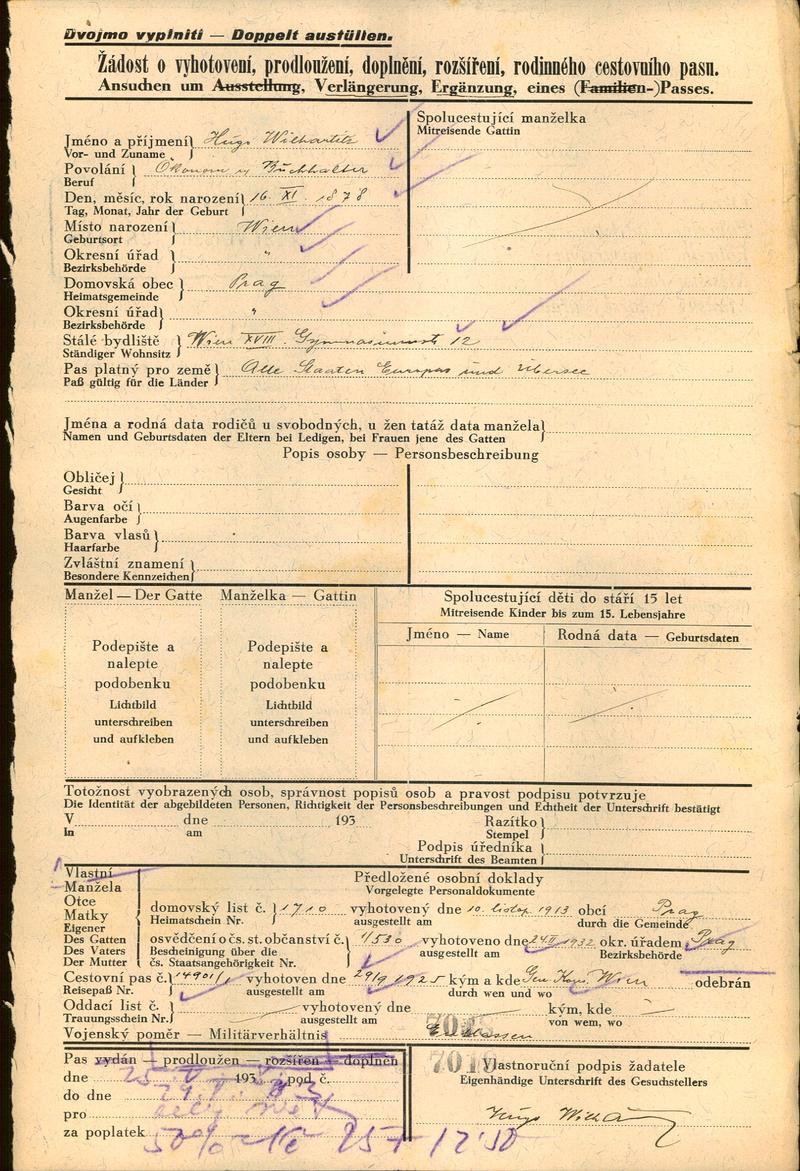 Dvojmo vyplniti — Doppelt austüllen.
Žádost o vyhotovení, prodloužení, doplnění, rozšíření, rodinného cestovního pasu.
Ansuchen um Ausstellung, Verlängerung, Ergänzung, eines (Familien-)Passes.
Spolucestující manželka
Mitreisende Gattin
Jméno a příjmení Hugo
Vor- und Zuname
Povolání Ökonom u Buchhalter
Beruf
Den, měsíc, rok narození 16. XI. 1878
Tag, Monat, Jahr der Geburt
Místo narození Wien
Geburtsort
Okresní úřad "
Bezirksbehörde
Domovská obec Prag
Heimatsgemeinde
Okresní úřad "
Bezirksbehörde
Stálé bydliště Wien XVIII. Gymnasiumstr 12
Ständiger Wohnsitz
Pas platný pro země Alle Staaten Europas und Übersee
Paß gültig für die Länder
Jména a rodná data rodičů u svobodných, u žen tatáž data manžela
Namen und Geburtsdaten der Eltern bei Ledigen, bei Frauen jene des Gatten
Popis osoby — Personsbeschreibung
Obličej
Gesicht
Barva očí
Augenfarbe
Barva vlasů
Haarfarbe
Zvláštní znamení
Besondere Kennzeichen
Manžel — Der Gatte Manželka — Gattin
Spolucestující děti do stáří 15 let
Mitreisende Kinder bis zum 15. Lebensjahre
Jméno — Name Rodná data — Geburtsdaten
Podepište a nalepte podobenku
Lichtbild unterschreiben und aufkleben
Podepište a nalepte podobenku
Lichtbild unterschreiben und aufkleben
Totožnost vyobrazených osob, správnost popisů osob a pravost podpisu potvrzuje
Die Identität der abgebildeten Personen, Richtigkeit der Personsbeschreibungen und Echtheit der Unterschrift bestätigt
V dne 193 Razítko
In am Stempel
Podpis úředníka
Unterschrift des Beamten
Vlastní
Manžela
Otce
Matky
Eigener
Des Gatten
Des Vaters
Der Mutter
Předložené osobní doklady
Vorgelegte Personaldokumente
domovský list č. 1710 vyhotovený dne 10. listop. 1913 obcí Prag
Heimatschein Nr. ausgestellt am durch die Gemeinde
osvědčení o čs. st. občanství č. 4530 vyhotoveno dne 1932 okr. úřadem Prag
Bescheinigung über die ausgestellt am Bezirksbehörde
čs. Staatsangehörigkeit Nr.
Cestovní pas č. vyhotoven dne 29/9 1925 kým a kde Gen Kons. Wien odebrán
Reisepaß Nr. ausgestellt am durch wen und wo
Oddací list č. vyhotovený dne kým, kde
Trauungsschein Nr. ausgestellt am von wem, wo
Vojenský poměr — Militärverhältnis
Pas vydán — prodloužen — rozšířen — doplněn
dne 193 pod č.
do dne
pro celý svět
za poplatek
Vlastnoruční podpis žadatele
Eigenhändige Unterschrift des Gesuchstellers